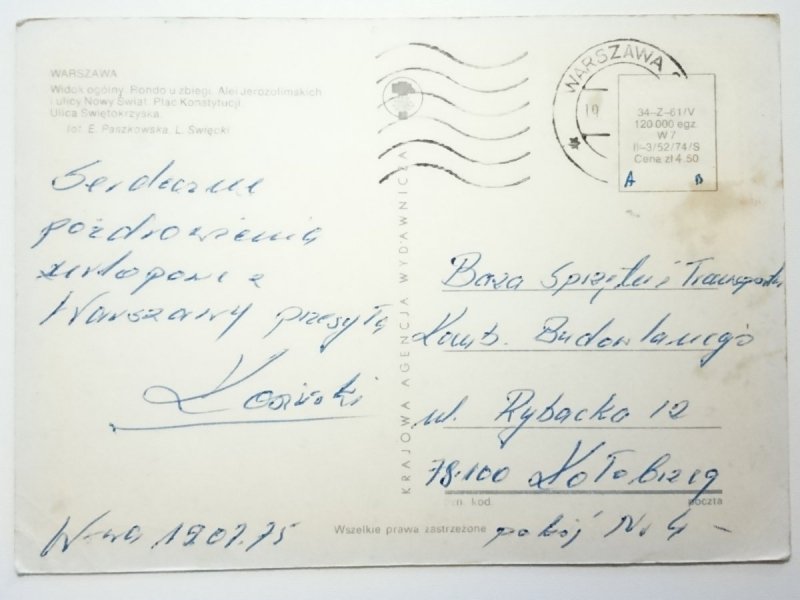 WARSZAWA
Widok ogólny. Rondo u zbiegu Alei Jerozolimskich
i ulicy Nowy Świat. Plac Konstytucji.
Ulica Świętokrzyska.
fot. E. Paszkowska, L. Święcki
Serdeczne
pozdrowienia
urlopowe z
Warszawy przesyła
W-wa 19.07.75
KRAJOWA AGENCJA WYDAWNICZA
WARSZAWA
19
34-Z-61/V
120 000 egz.
W 7
II-3/52/74/S
Cena zł 4.50
A B
Baza Sprzętu i Transportu
Komb. Budowlanego
ul. Rybacka 12
78-100 Kołobrzeg
m. kod poczta
pokój Nr 4 -
Wszelkie prawa zastrzeżone